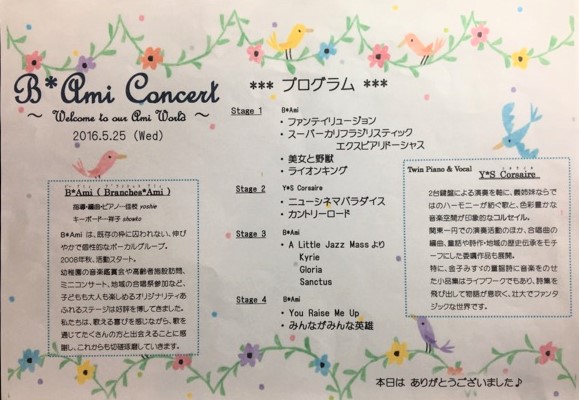 B*Ami Concert
～ Welcome to our Ami World ～
2016.5.25 (Wed)
B*Ami ( Branches*Ami )
指導・編曲・ピアノ…佳枝 yoshie
キーボード…祥子 showko
B*Ami は、既存の枠に囚われない、伸び
やかで個性的なボーカルグループ。
2008年秋、活動スタート。
幼稚園の音楽鑑賞会や高齢者施設訪問、
ミニコンサート、地域の合唱祭参加など、
子どもも大人も楽しめるオリジナリティあ
ふれるステージは好評を博してきました。
私たちは、歌える喜びを感じながら、歌を
通じてたくさんの方と出会えることに感
謝し、これからも切磋琢磨していきます。
*** プログラム ***
Stage 1 B*Ami
・ファンテイリュージョン
・スーパーカリフラジリスティック
エクスピアリドーシャス
・美女と野獣
・ライオンキング
Stage 2 Y*S Corsaire
・ニューシネマパラダイス
・カントリーロード
Stage 3 B*Ami
・A Little Jazz Mass より
Kyrie
Gloria
Sanctus
Stage 4 B*Ami
・You Raise Me Up
・みんながみんな英雄
Twin Piano & Vocal Y*S Corsaire
2台鍵盤による演奏を軸に、義姉妹ならで
はのハーモニーが紡ぐ歌と、色彩豊かな
音楽空間が印象的なコルセイル。
関東一円での演奏活動のほか、合唱曲の
編曲、童話や詩作・地域の歴史伝承をモチ
ーフにした委嘱作品も展開。
特に、金子みすゞの童謡詩に音楽をのせ
た小品集はライフワークでもあり、詩集を
飛び出して物語が息吹く、壮大でファンタ
ジックな世界です。
本日は ありがとうございました♪